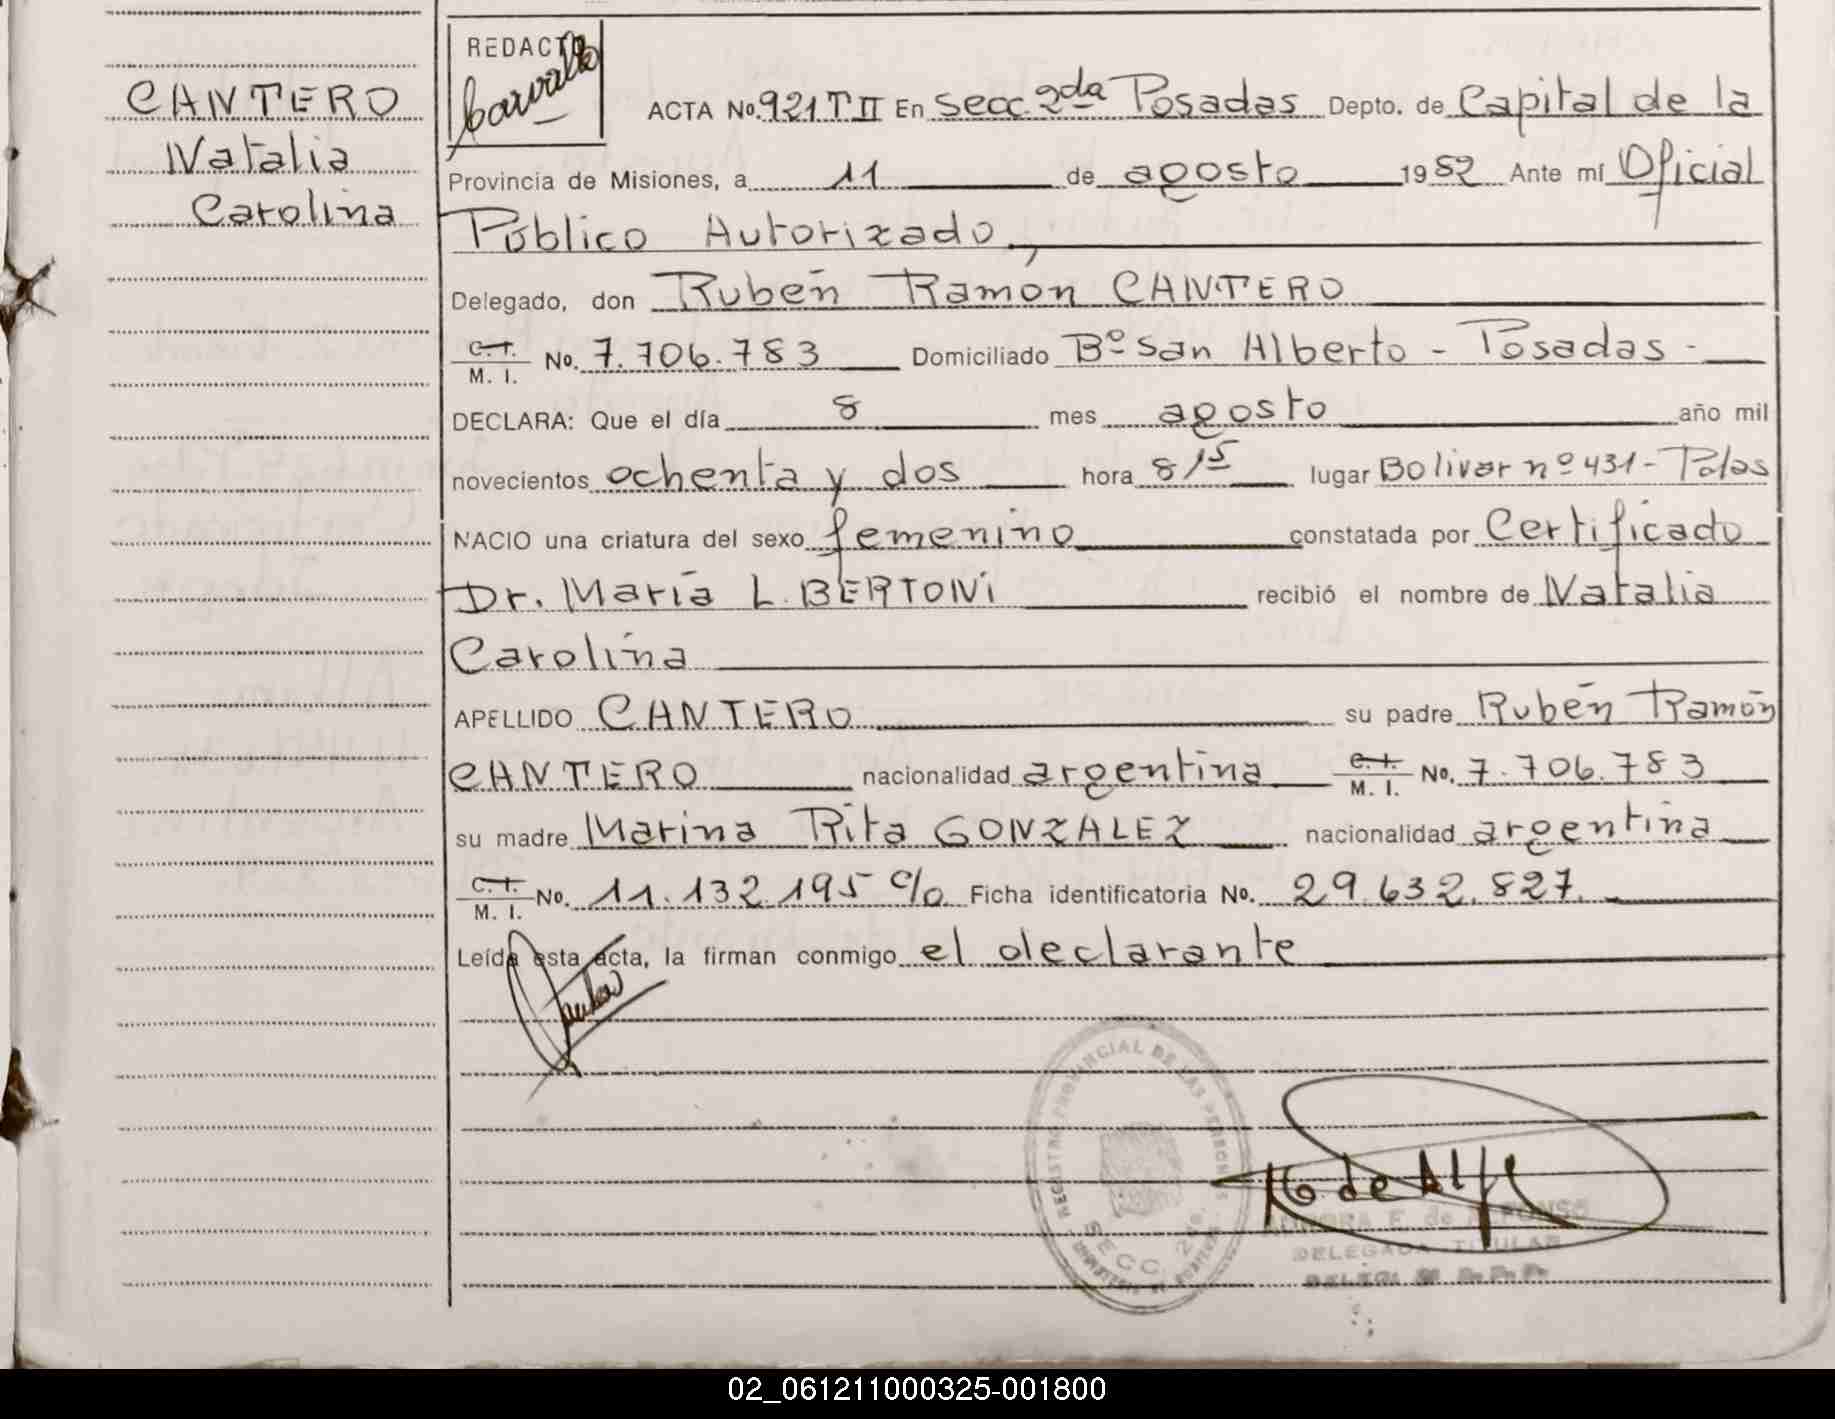 CANTERO
Natalia
Carolina
REDACTO
ACTA No. 921 T II En Secc. 2da Posadas Depto. de Capital de la
Provincia de Misiones, a 11 de agosto 1982 Ante mí Oficial
Público Autorizado,
Delegado, don Rubén Ramón CANTERO
C. I. M. I. No. 7.706.783 Domiciliado Bº San Alberto - Posadas -
DECLARA: Que el día 8 mes agosto año mil
novecientos ochenta y dos hora 8/15 lugar Bolivar nº 431 - Pdas
NACIO una criatura del sexo femenino constatada por Certificado
Dr. María L. BERTONI recibió el nombre de Natalia
Carolina
APELLIDO CANTERO su padre Rubén Ramón
CANTERO nacionalidad argentina C. I. M. I. No. 7.706.783
su madre Marina Rita GONZALEZ nacionalidad argentina
C. I. M. I. No. 11.132.195 C/o Ficha identificatoria No. 29.632.827.
Leída esta acta, la firman conmigo el declarante
REGISTRO PROVINCIAL DE LAS PERSONAS
SECC. 2da.
AURORA E. de ALFONSO
DELEGADA TITULAR
02_061211000325-001800